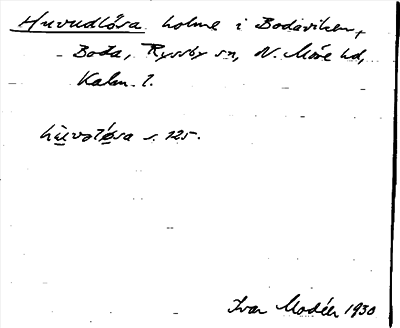 Huvudlösa holme i Bodaviken,
Boda, Ryssby sn, N. Möre hd,
Kalm. l.
huvolösa s. 225.
Ivar Modéer 1930